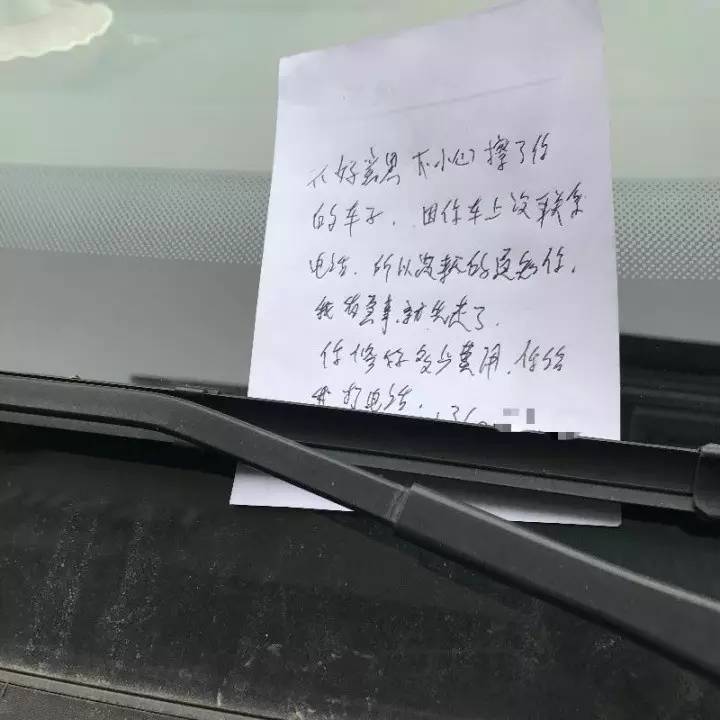 不好意思 不小心擦了你
的车子，因你车上没联系
电话，所以没通知你，
我有事就先走了.
你修好多少费用，你给
我打电话：